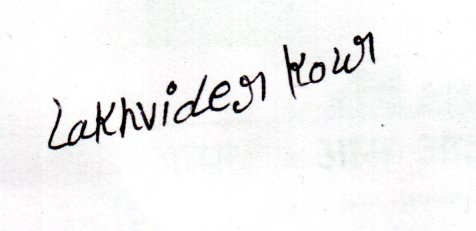 Lakhvider Kour